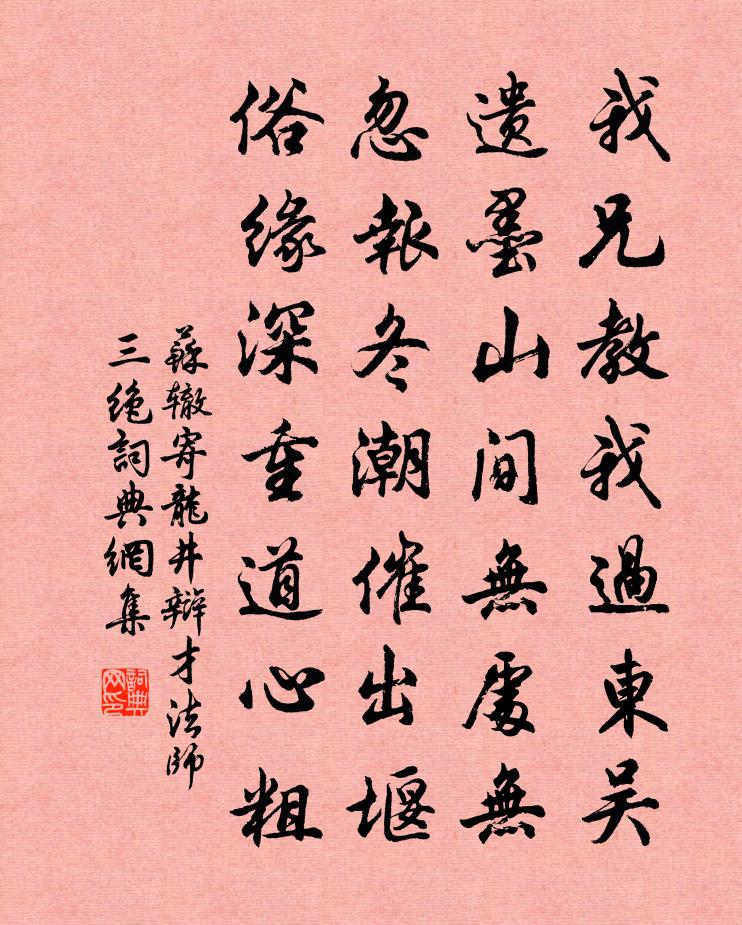 我兄教我過東吴
遗墨山间無處無
忽報冬潮催出堰
俗缘深重道心粗
蘇辙寄龍井辩才法師
三绝詞典網集
詞典网印